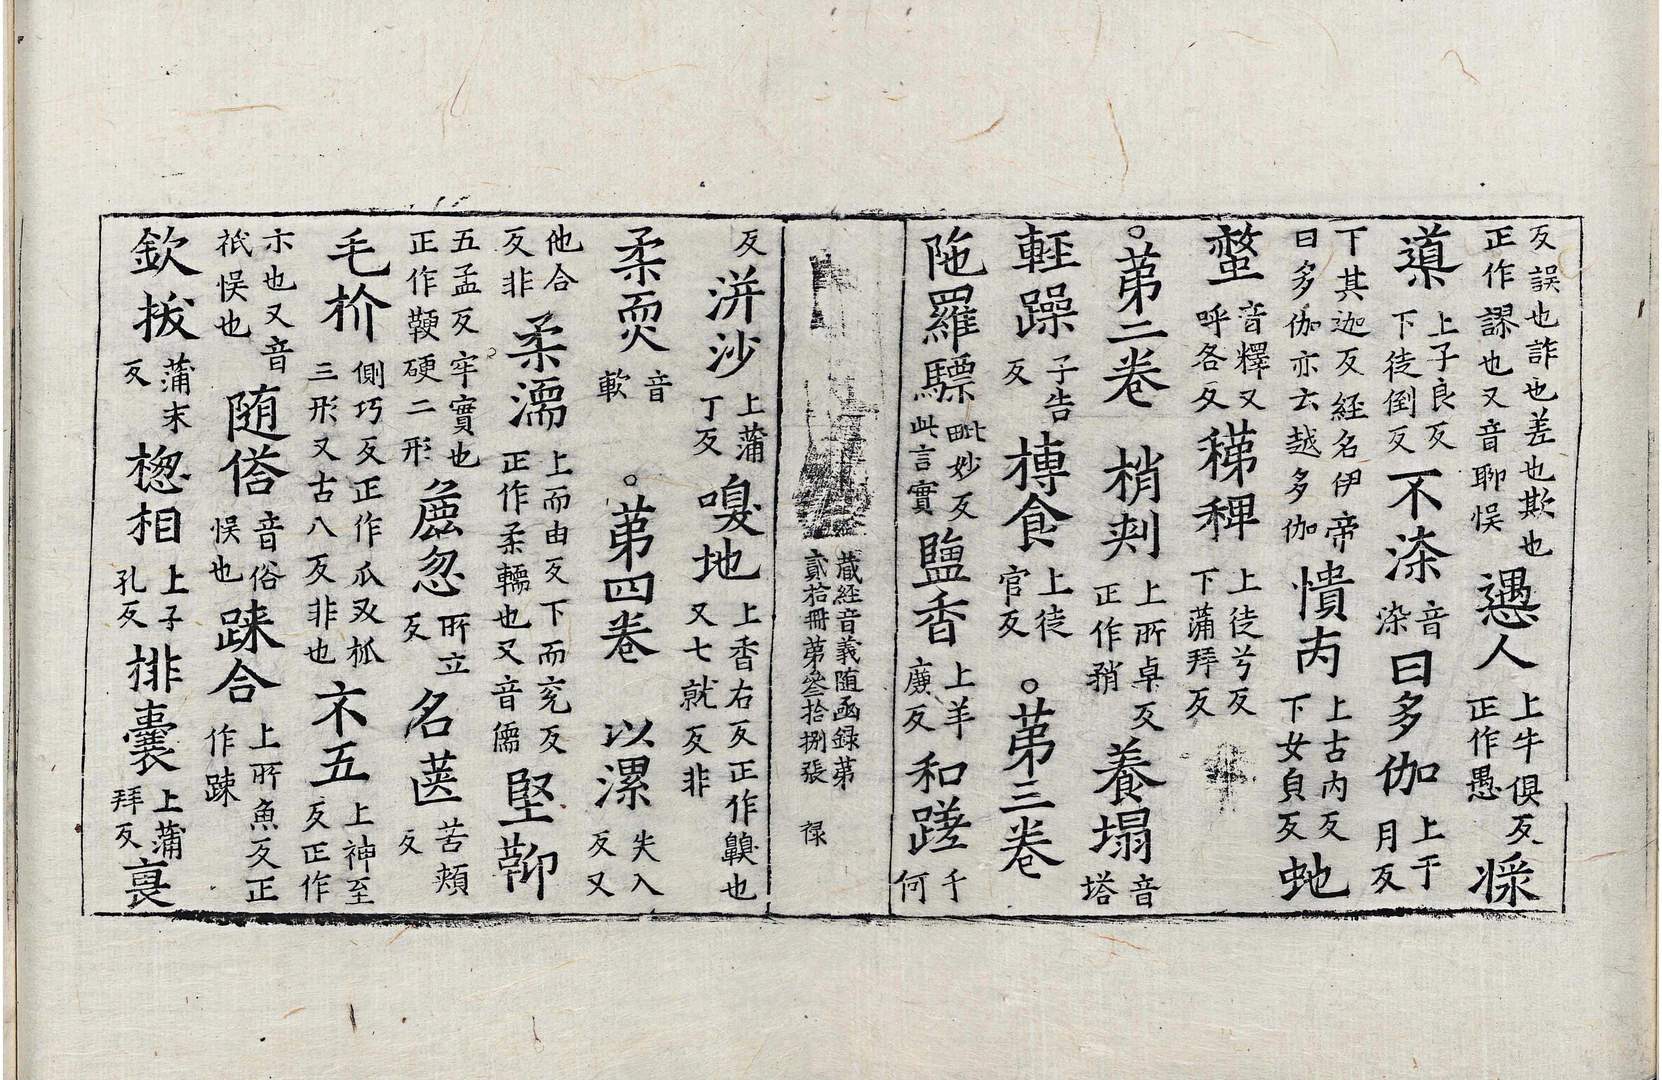 反誤也詐也差也欺也
正作謬也又音聊悮
愚人
上牛俱反
正作愚
將
導
上子良反
下徒倒反
不㳒
音
染
曰多伽
上于
月反
下其迦反経名伊帝
曰多伽亦云越多伽
憒丙
上古内反
下女皃反
虵
螫
音釋又
呼各反
稊稗
上徒兮反
下蒲拜反
。苐二卷
梢剌
上所卓反
正作矟
養塌
音
塔
輕躁
子告
反
摶食
上徒
官反
。苐三卷
陁羅驃
毗妙反
此言實
鹽香
上羊
廉反
和蹉
千
何
藏経音義随函録苐
貳拾冊苐叄拾捌張
禄
反
洴沙
上蒲
丁反
嗅地
上香右反正作齅也
又七就反非
柔耎
音
軟
。苐四卷
以漯
失入
反又
他合
反非
柔濡
上而由反下而兖反
正作柔輭也又音儒
堅䩕
五孟反牢實也
正作鞕硬二形
麁忽
所立
反
名医
苦頰
反
毛枌
側巧反正作爪𠬪抓
三形又古八反非也
不五
上神至
反正作
示也又音
祇悮也
随俗
音俗
悮也
踈合
上所魚反正
作踈
欽拔
蒲末
反
楤相
上子
孔反
排囊
上蒲
拜反
裛